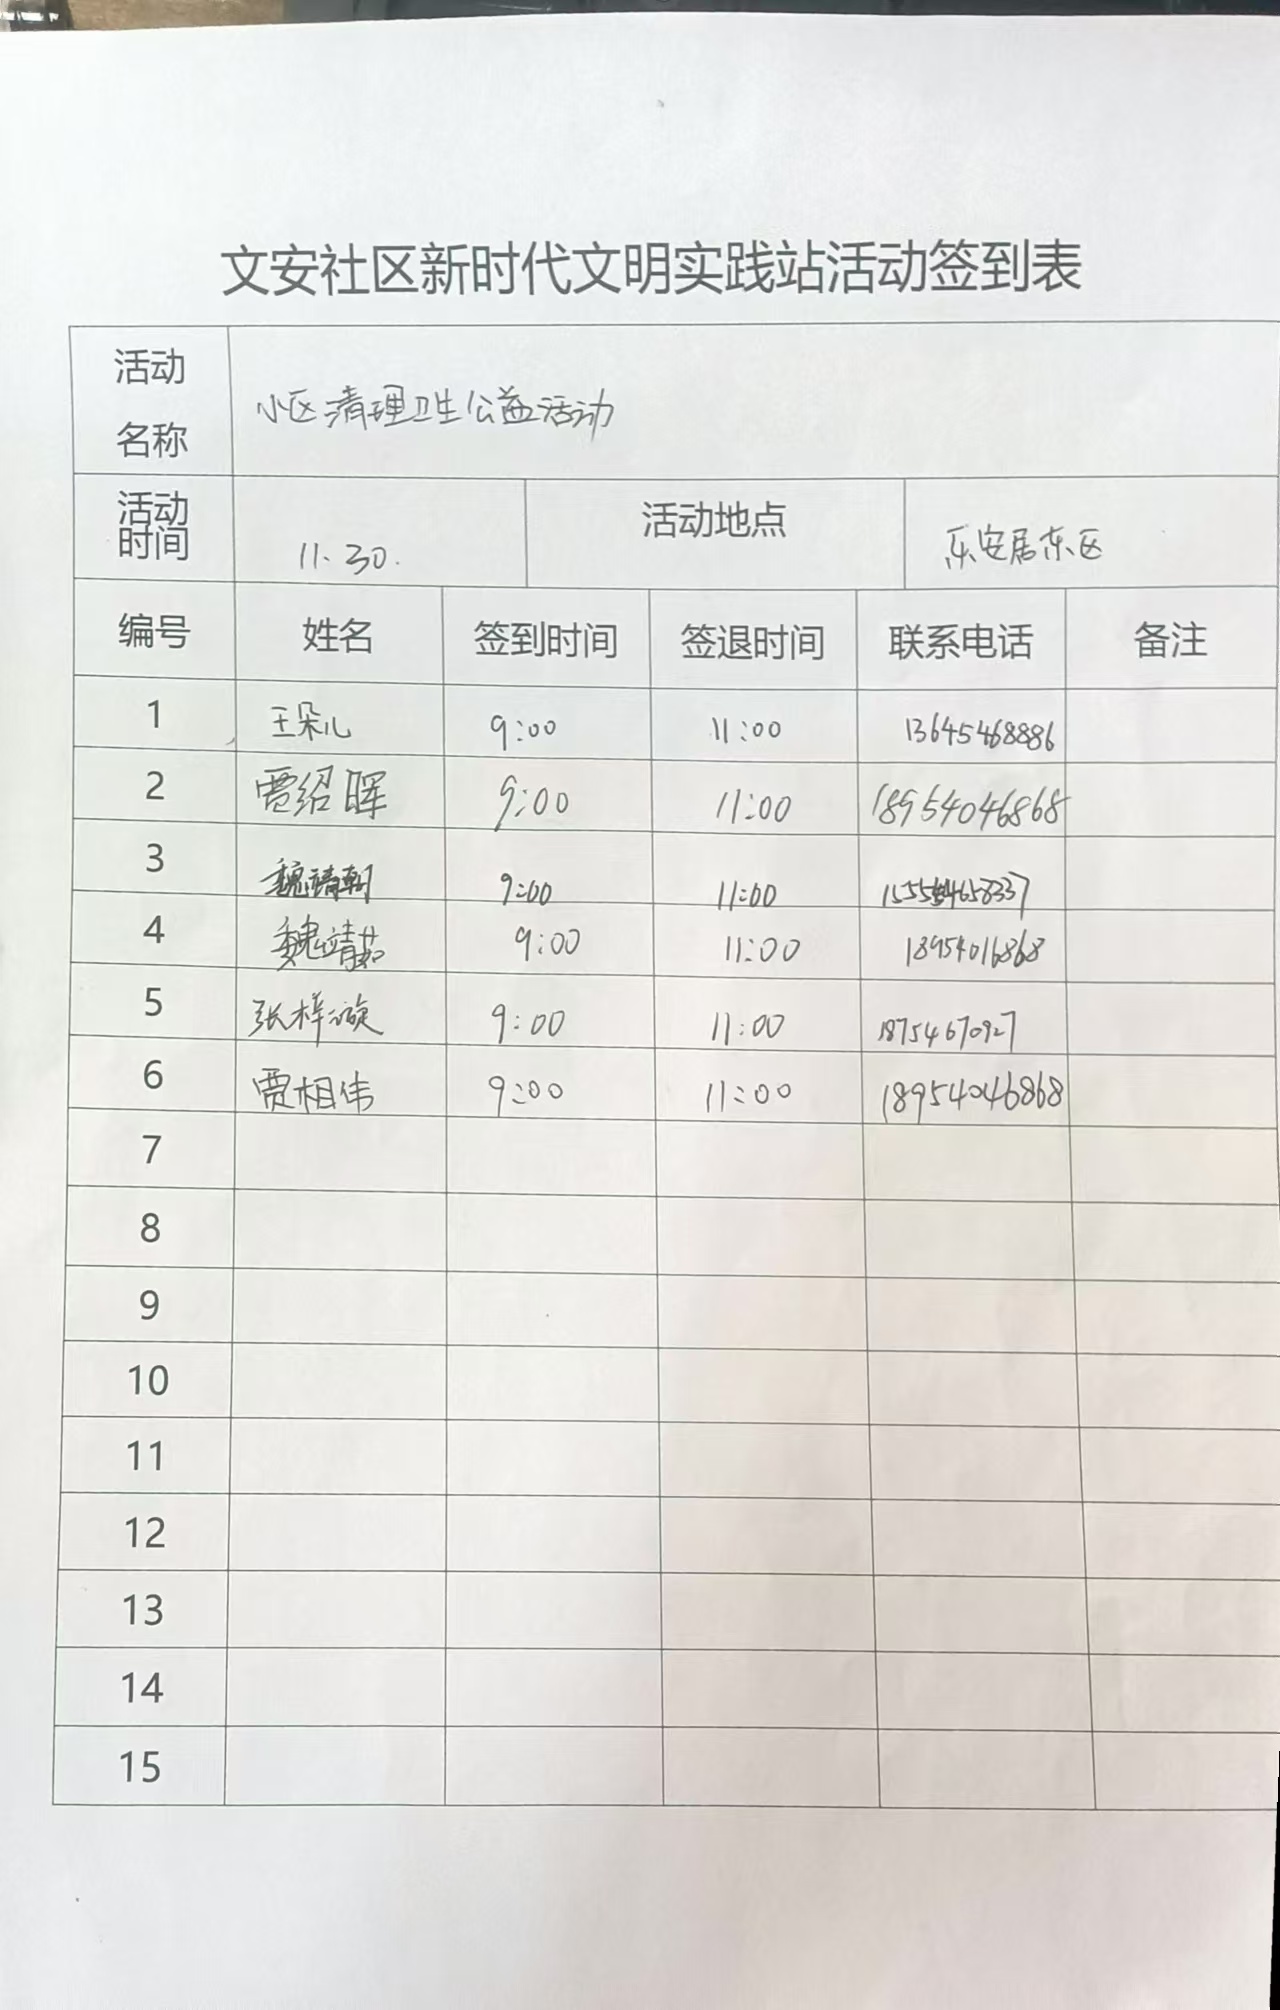 文安社区新时代文明实践站活动签到表
活动名称 小区清理卫生公益活动
活动时间 11.30. 活动地点 乐安居东区
编号 姓名 签到时间 签退时间 联系电话 备注
1 王朵儿 9:00 11:00 13645468886
2 贾绍晖 9:00 11:00 18954046868
3 9:00 11:00
4 魏靖茹 9:00 11:00 18954016868
5 张梓漩 9:00 11:00 18754670927
6 贾相伟 9:00 11:00 18954046868
7
8
9
10
11
12
13
14
15